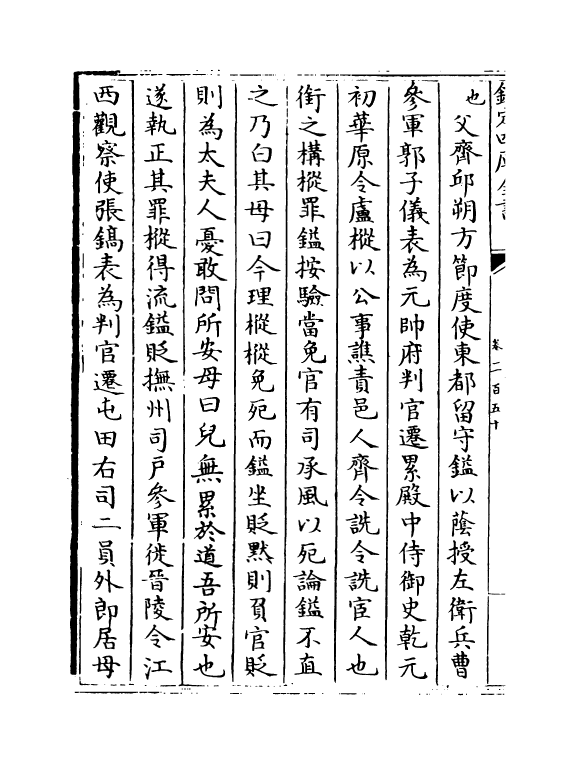 欽定四庫全書
卷一百五十
也父齊邱朔方節度使東都留守鎰以蔭授左衛兵曹
參軍郭子儀表為元帥府判官遷累殿中侍御史乾元
初華原令盧樅以公事譙責邑人齊令詵令詵宦人也
銜之構樅罪鎰按驗當免官有司承風以死論鎰不直
之乃白其母曰今理樅樅免死而鎰坐貶黙則負官貶
則為太夫人憂敢問所安母曰兒無累於道吾所安也
遂執正其罪樅得流鎰貶撫州司戸參軍徙晉陵令江
西觀察使張鎬表為判官遷屯田右司二員外郎居母